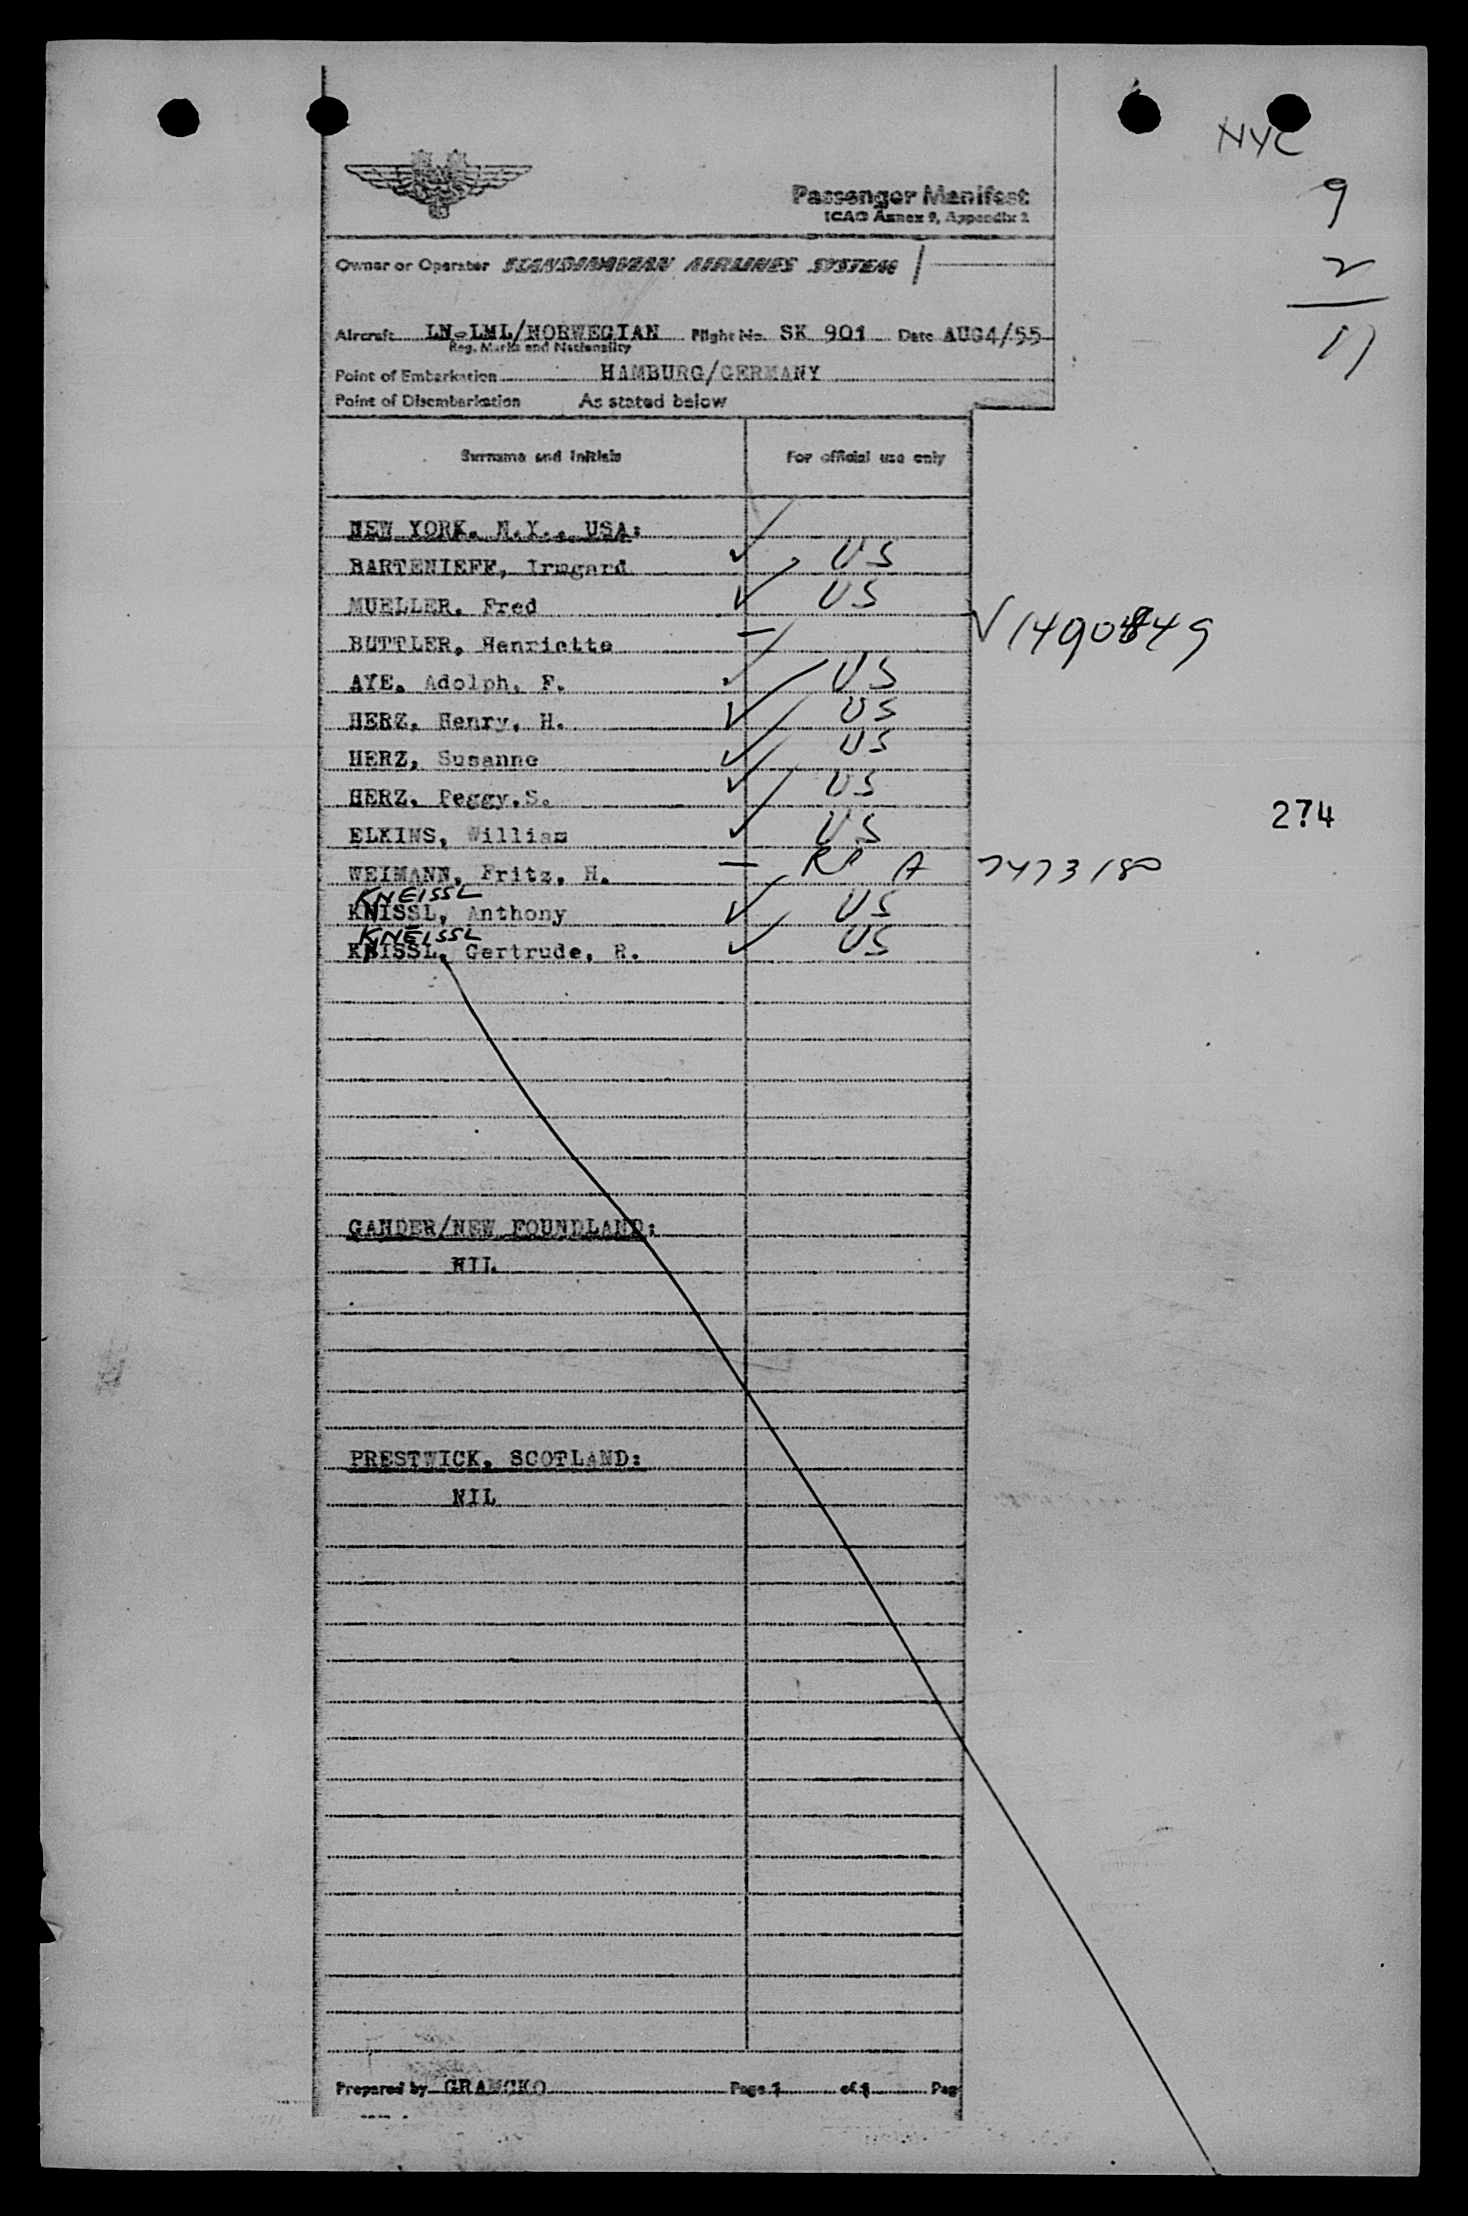 NYC
9
2
11
Passenger Manifest
ICAO Annex 9, Appendix 2
Owner or Operator SCANDINAVIAN AIRLINES SYSTEM
Aircraft LN-LML/NORWEGIAN Flight No. SK 901 Date AUG4/55
Reg. Marks and Nationality
Point of Embarkation HAMBURG/GERMANY
Point of Disembarkation As stated below
Surname and Initials For official use only
NEW YORK. N.Y., USA:
BARTENIEFF, Irmgard ✓ US
MUELLER, Fred ✓ US
BUTTLER, Henriette — V 1490849
AYE, Adolph, F. ✓ US
HERZ, Henry, H. ✓ US
HERZ, Susanne ✓ US
HERZ, Peggy,S. ✓ US
274
ELKINS, William ✓ US
WEIMANN, Fritz, H. — RP A 7473180
KNEISSL
KNISSL, Anthony ✓ US
KNEISSL
KNISSL, Gertrude, R. ✓ US
GANDER/NEW FOUNDLAND:
NIL
PRESTWICK, SCOTLAND:
NIL
Prepared by GRAMCKO Page 1 of 1 Pag